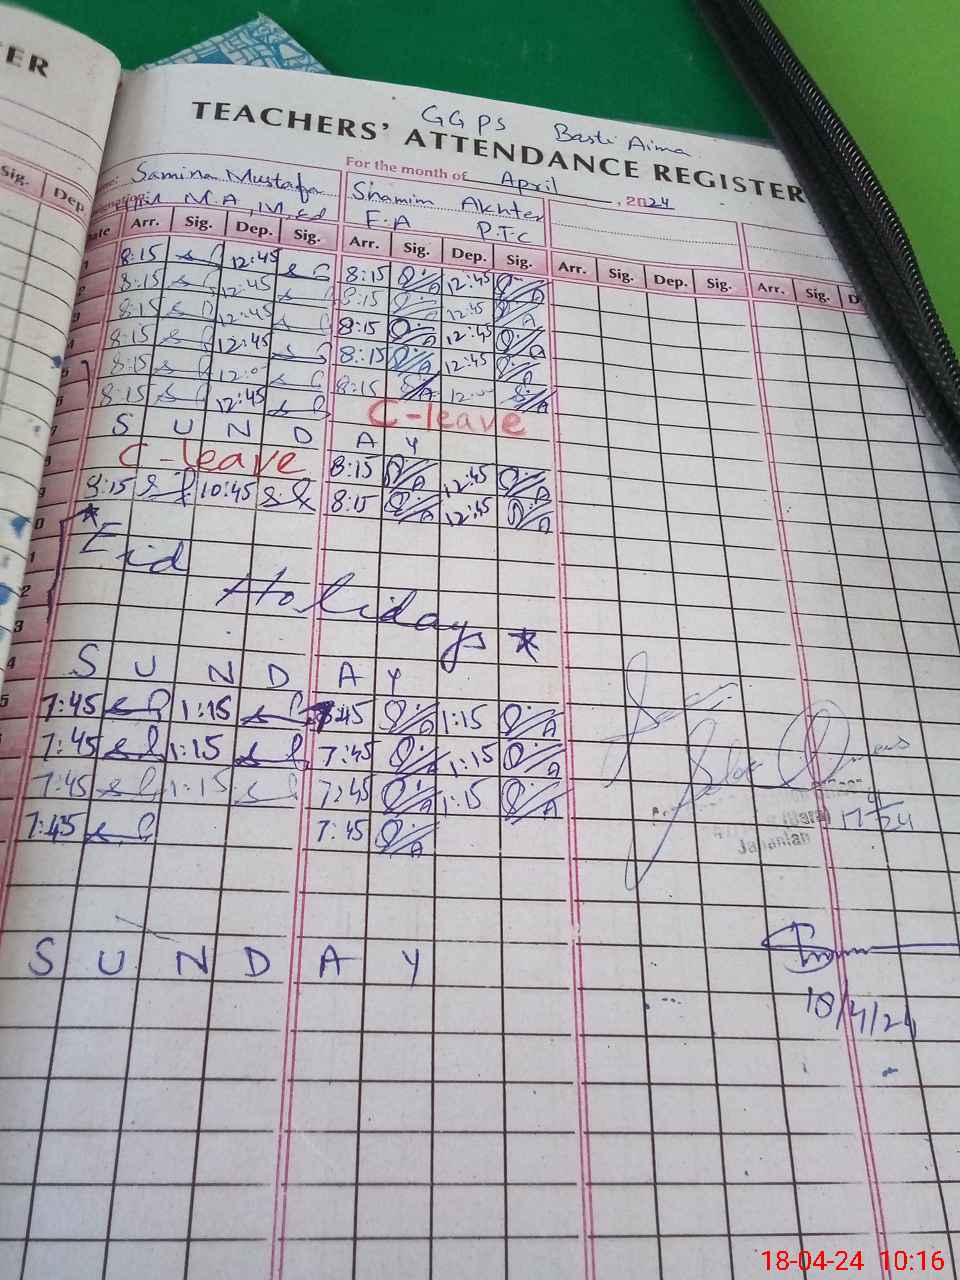 ER
GGPS Basti Aima
TEACHERS' ATTENDANCE REGISTER
For the month of April, 2024
Samina Mustafa Shamim Akhter
M.A, M.Ed F.A P.T.C
Sig. Dep
Arr. Sig. Dep. Sig. Arr. Sig. Dep. Sig. Arr. Sig. Dep. Sig. Arr. Sig. D
8:15 12:45 8:15 12:45
8:15 12:45 8:15 12:45
8:15 12:45 8:15 12:45
8:15 12:45 8:15 12:45
8:15 8:15
8:15 12:45 C-leave
S U N D A Y
C-leave 8:15 12:45
8:15 10:45 8:15 12:45
* Eid
Holidays *
S U N D A Y
7:45 1:15 7:45 1:15
7:45 1:15 7:45 1:15
7:45 1:15 7:45 1:15
7:45 7:45
17/4/24
Jahanian
S U N D A Y
18/4/24
18-04-24 10:16